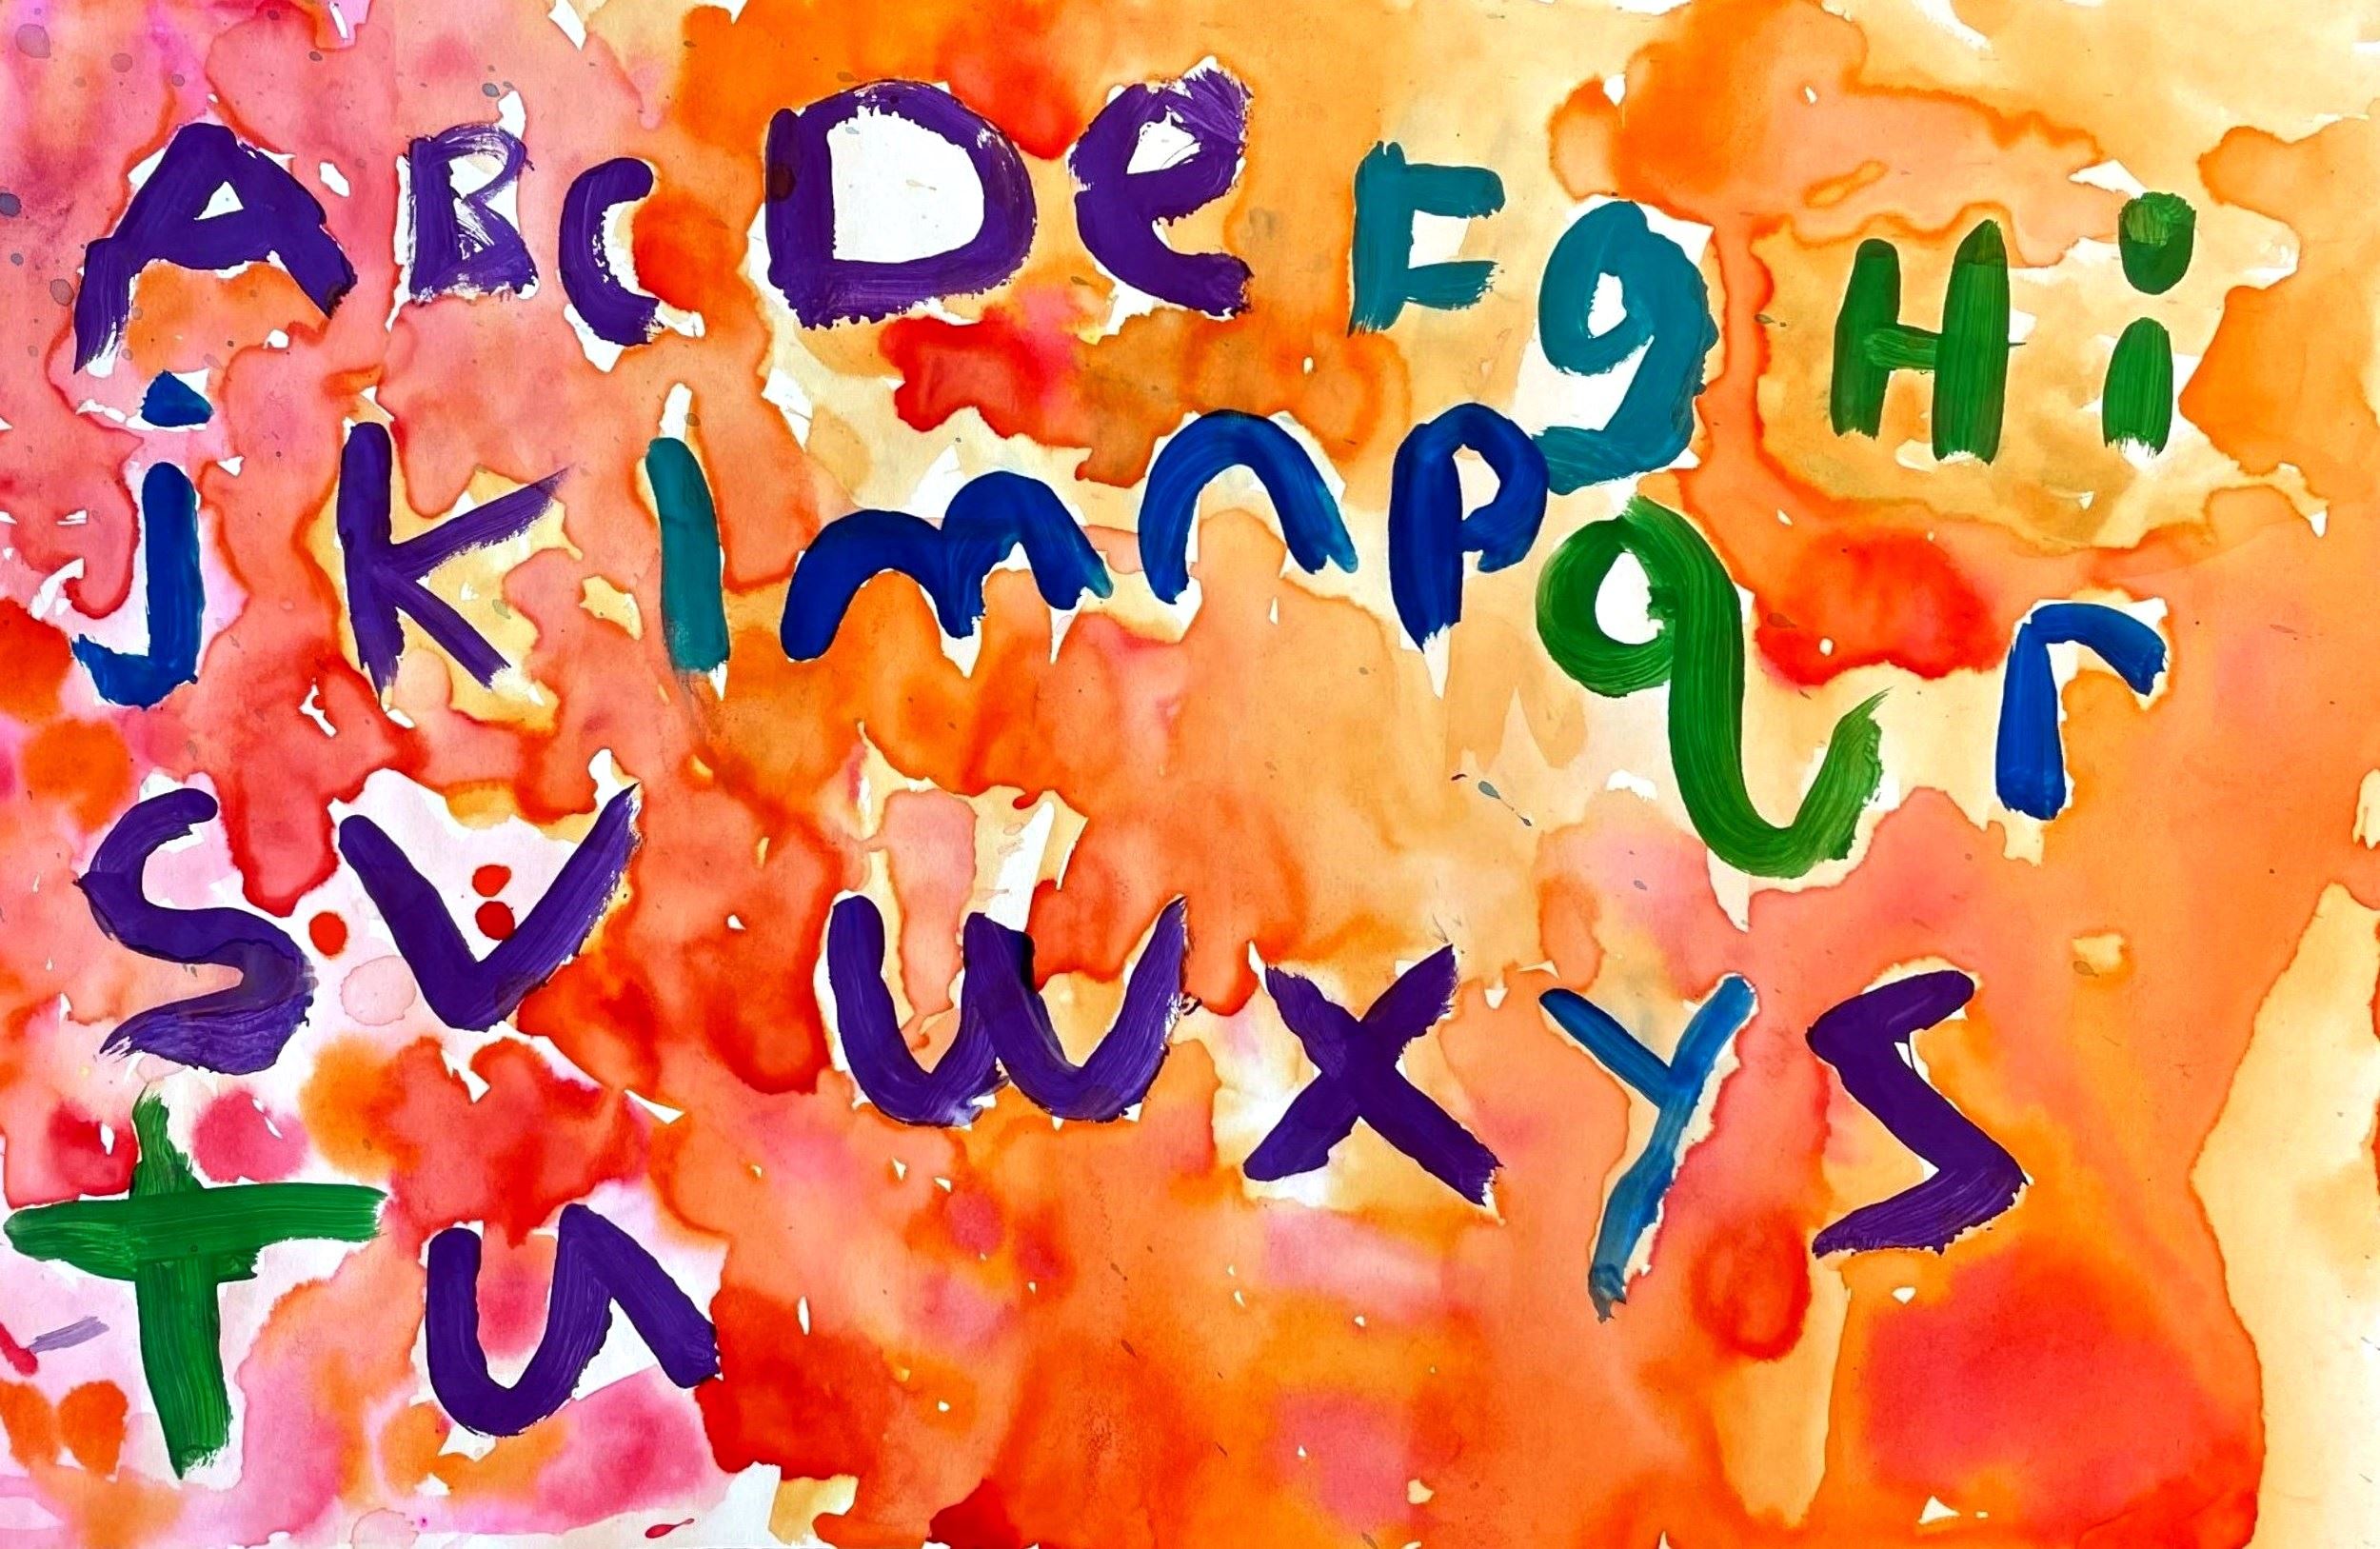 A B C D e F g H i
j K l m n P q r
S V W X Y S
T u